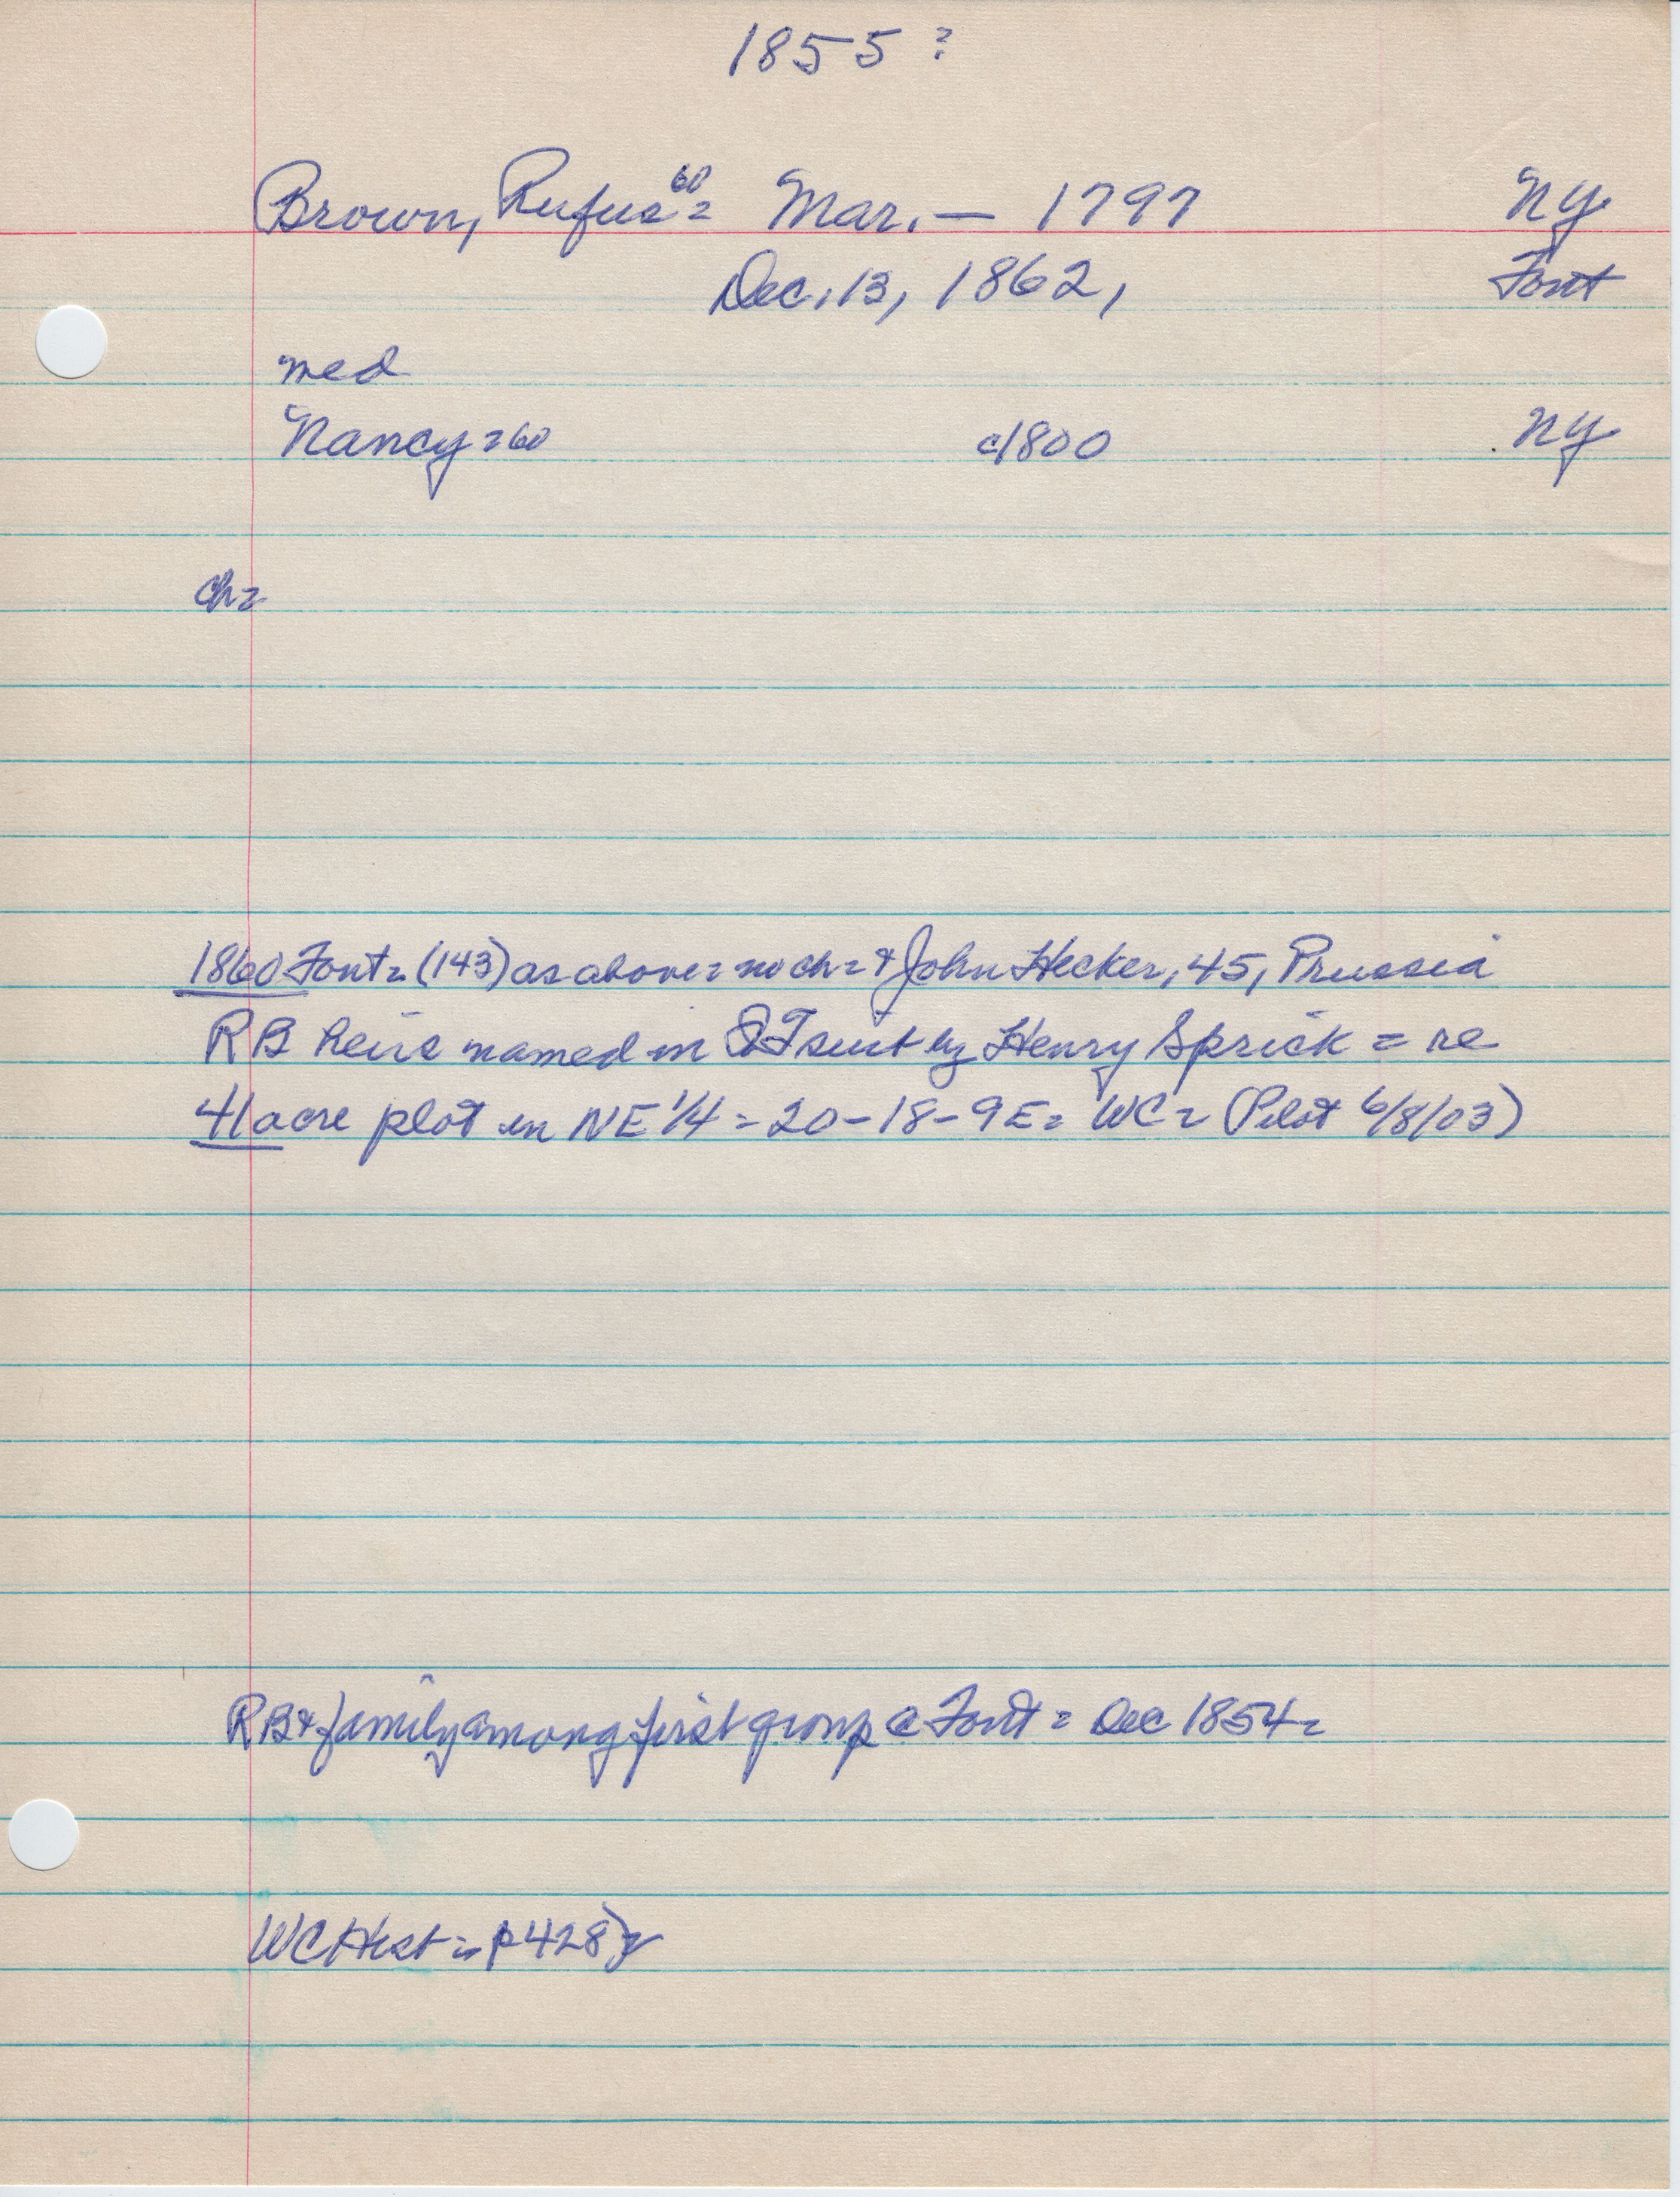 1855?
Brown, Rufus 60 = Mar. — 1797 NY
Dec. 13, 1862, Font
med
Nancy = 60 c1800 NY
ch =
1860 Font = (143) as above = no ch = & John Hecker, 45, Prussia
RB heirs named in QT suit by Henry Sprick = re
41 acre plot in NE 1/4 = 20-18-9E = WC = (Pilot 6/8/03)
RB & family among first group @ Font = Dec 1854 =
WC Hist = p 428